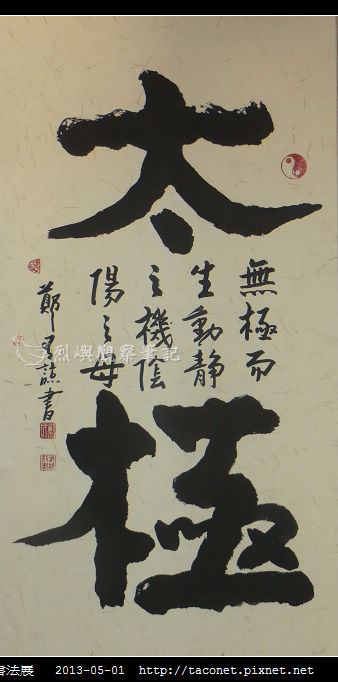 太極
無極而
生動靜
之機陰
陽之母
鄭有諒書
烈嶼觀察筆記
書法展 2013-05-01 http://taconet.pixnet.net